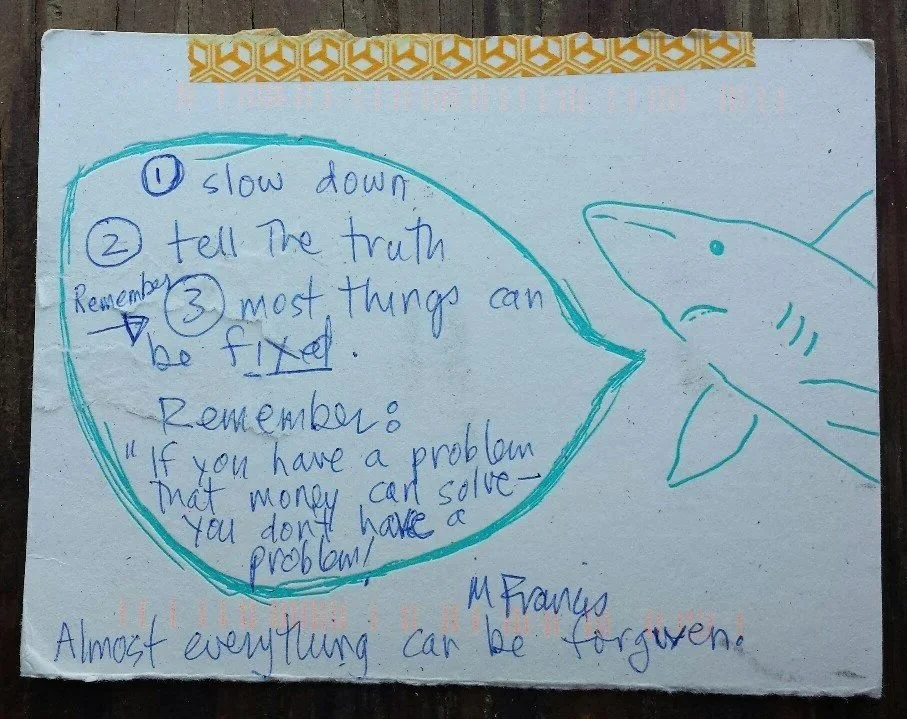 ① slow down
② tell The truth
Remember ③ most things can
be fixed.
Remember:
"If you have a problem
That money can solve—
you dont have a
problem!
M Francis
Almost everything can be forgiven.